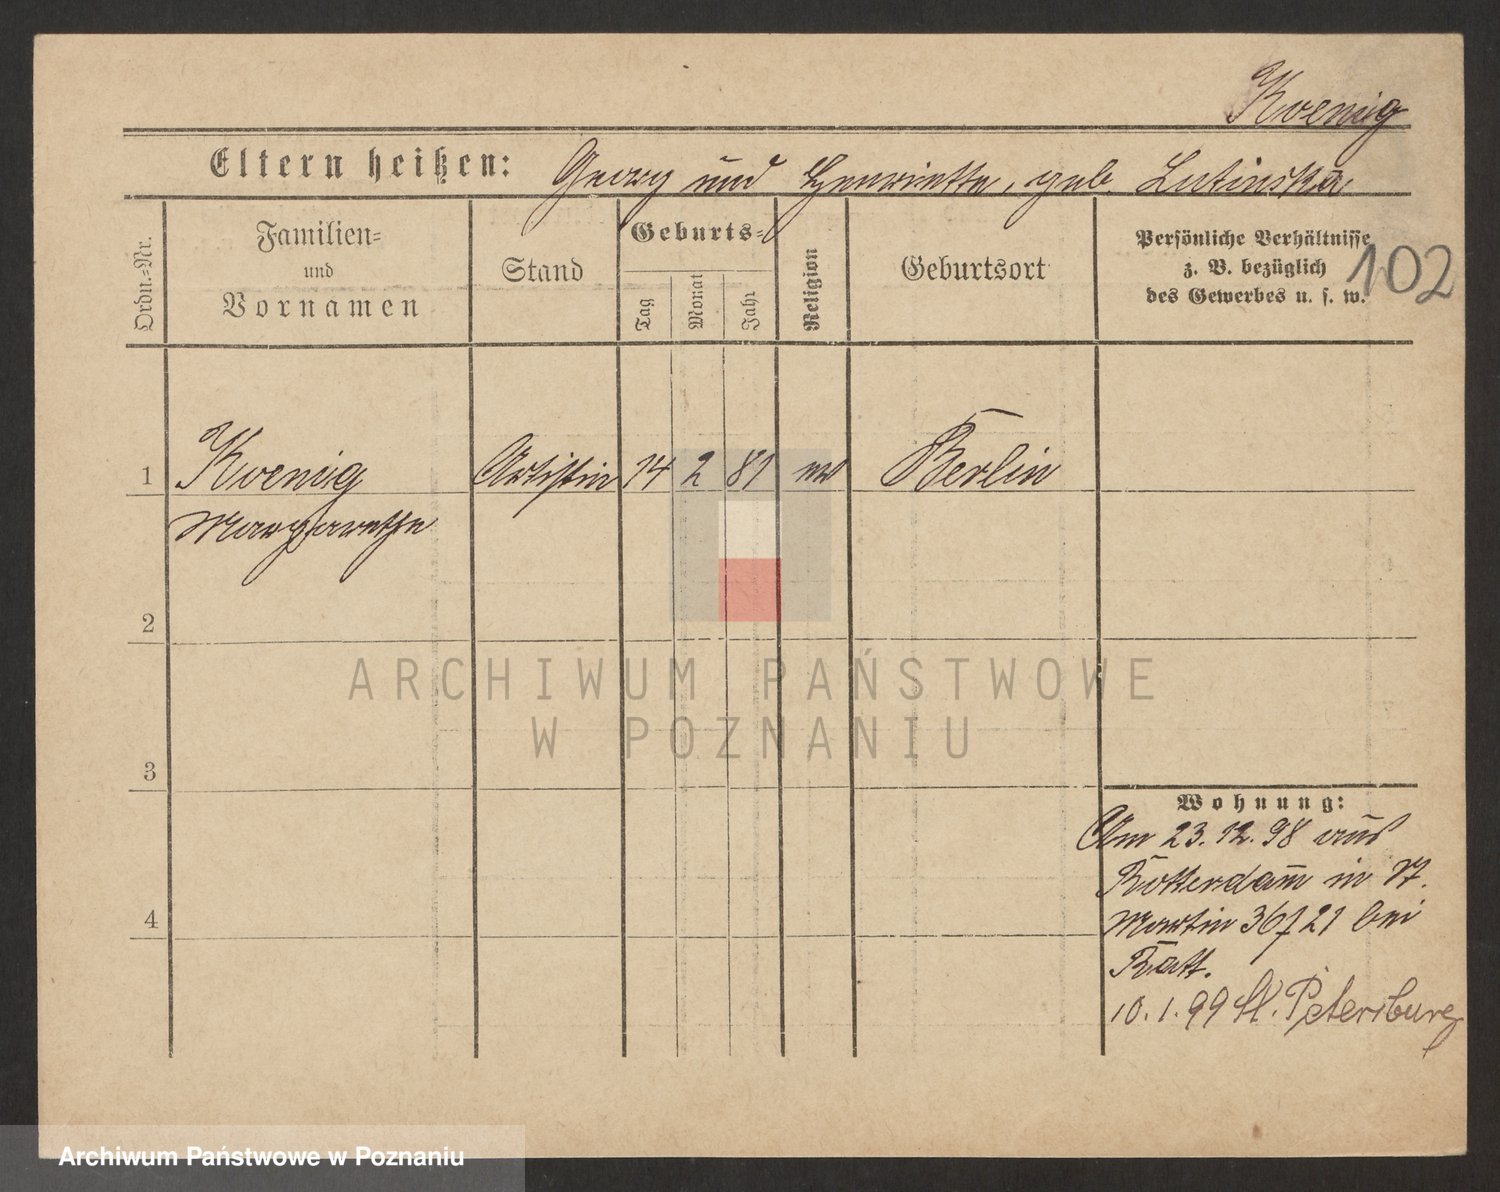 Koenig
Eltern heißen: Georg und Henriette, geb. Lutinska
Ordn.-Nr.
Familien-
und
Vornamen
Stand
Geburts-
Tag
Monat
Jahr
Religion
Geburtsort
Persönliche Verhältnisse
z. B. bezüglich
des Gewerbes u. s. w.
102
1 Koenig Artistin 14 2 81 Berlin
Margarethe
2
3
4
Wohnung:
Am 23.12.98 aus
Rotterdam in St.
Martin 36/21 bei
Ratt.
10.1.99 St. Petersburg
ARCHIWUM PAŃSTWOWE
W POZNANIU
Archiwum Państwowe w Poznaniu